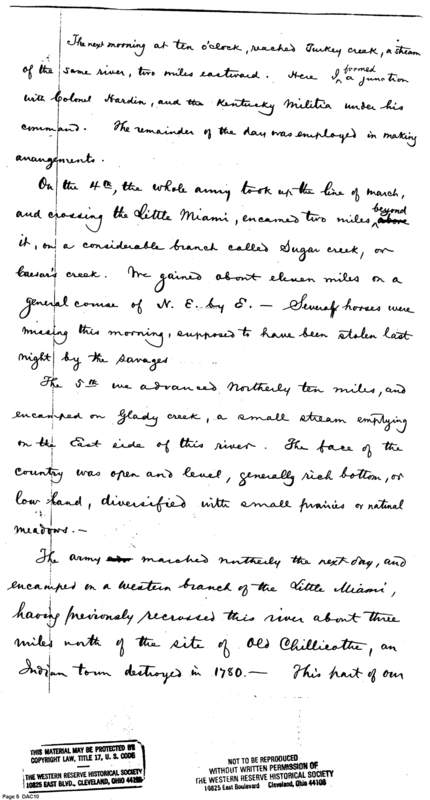 The next morning at ten o'clock, reached Turkey creek, a stream
of the same river, two miles eastward. Here I formed a junction
with Colonel Hardin, and the Kentucky Militia under his
command. The remainder of the day was employed in making
arrangements.
On the 4th, the whole army took up the line of march,
and crossing the Little Miami, encamed two miles above beyond
it, on a considerable branch called Sugar creek, or
Caesar's creek. We gained about eleven miles on a
general course of N. E. by E. — Several horses were
missing this morning, supposed to have been stolen last
night by the savages
The 5th we advanced Northerly ten miles, and
encamped on Glady creek, a small stream emptying
on the East side of this river. The face of the
country was open and level, generally rich bottom, or
low land, diversified with small prairies or natural
meadows. —
The army marched northerly the next day, and
encamped on a western branch of the Little Miami,
having previously recrossed this river about three
miles north of the site of Old Chillicothe, an
Indian town destroyed in 1780. — This part of our
THIS MATERIAL MAY BE PROTECTED BY
COPYRIGHT LAW, TITLE 17, U. S. CODE
THE WESTERN RESERVE HISTORICAL SOCIETY
10825 EAST BLVD., CLEVELAND, OHIO 44106
NOT TO BE REPRODUCED
WITHOUT WRITTEN PERMISSION OF
THE WESTERN RESERVE HISTORICAL SOCIETY
10825 East Boulevard Cleveland, Ohio 44106
Page 6 DAC10